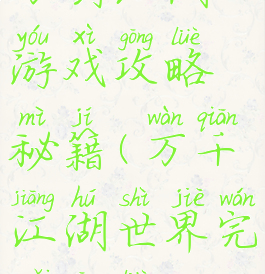 yóu xì gōng lüè
游戏攻略
mì jí wàn qiān
秘籍(万千
jiāng hú shì jiè wán
江湖世界完